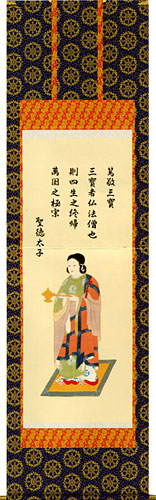 篤敬三寶
三寶者仏法僧也
則四生之終帰
萬国之極宗
聖徳太子